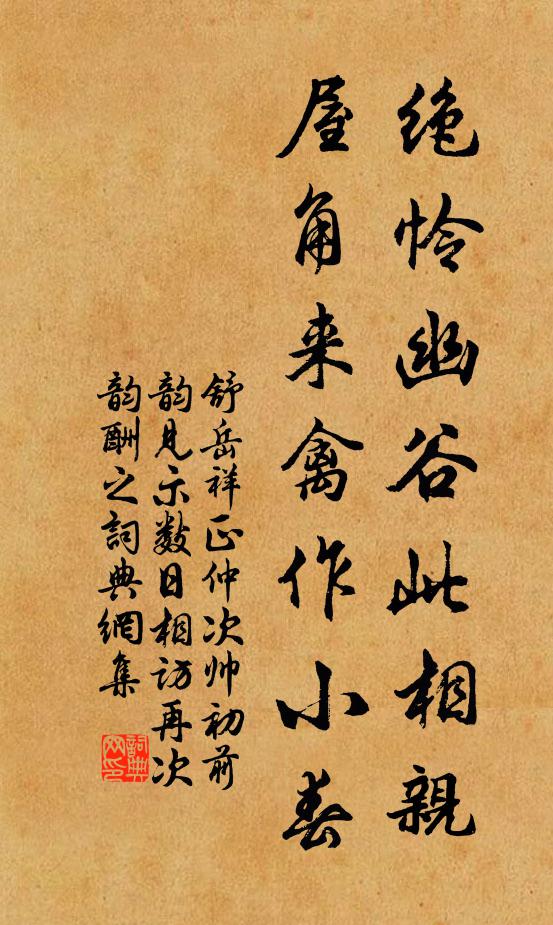 绝怜幽谷此相親
屋角来禽作小春
舒岳祥正仲次帅初前
韵見示数日相访再次
韵酬之詞典網集
詞典
网印